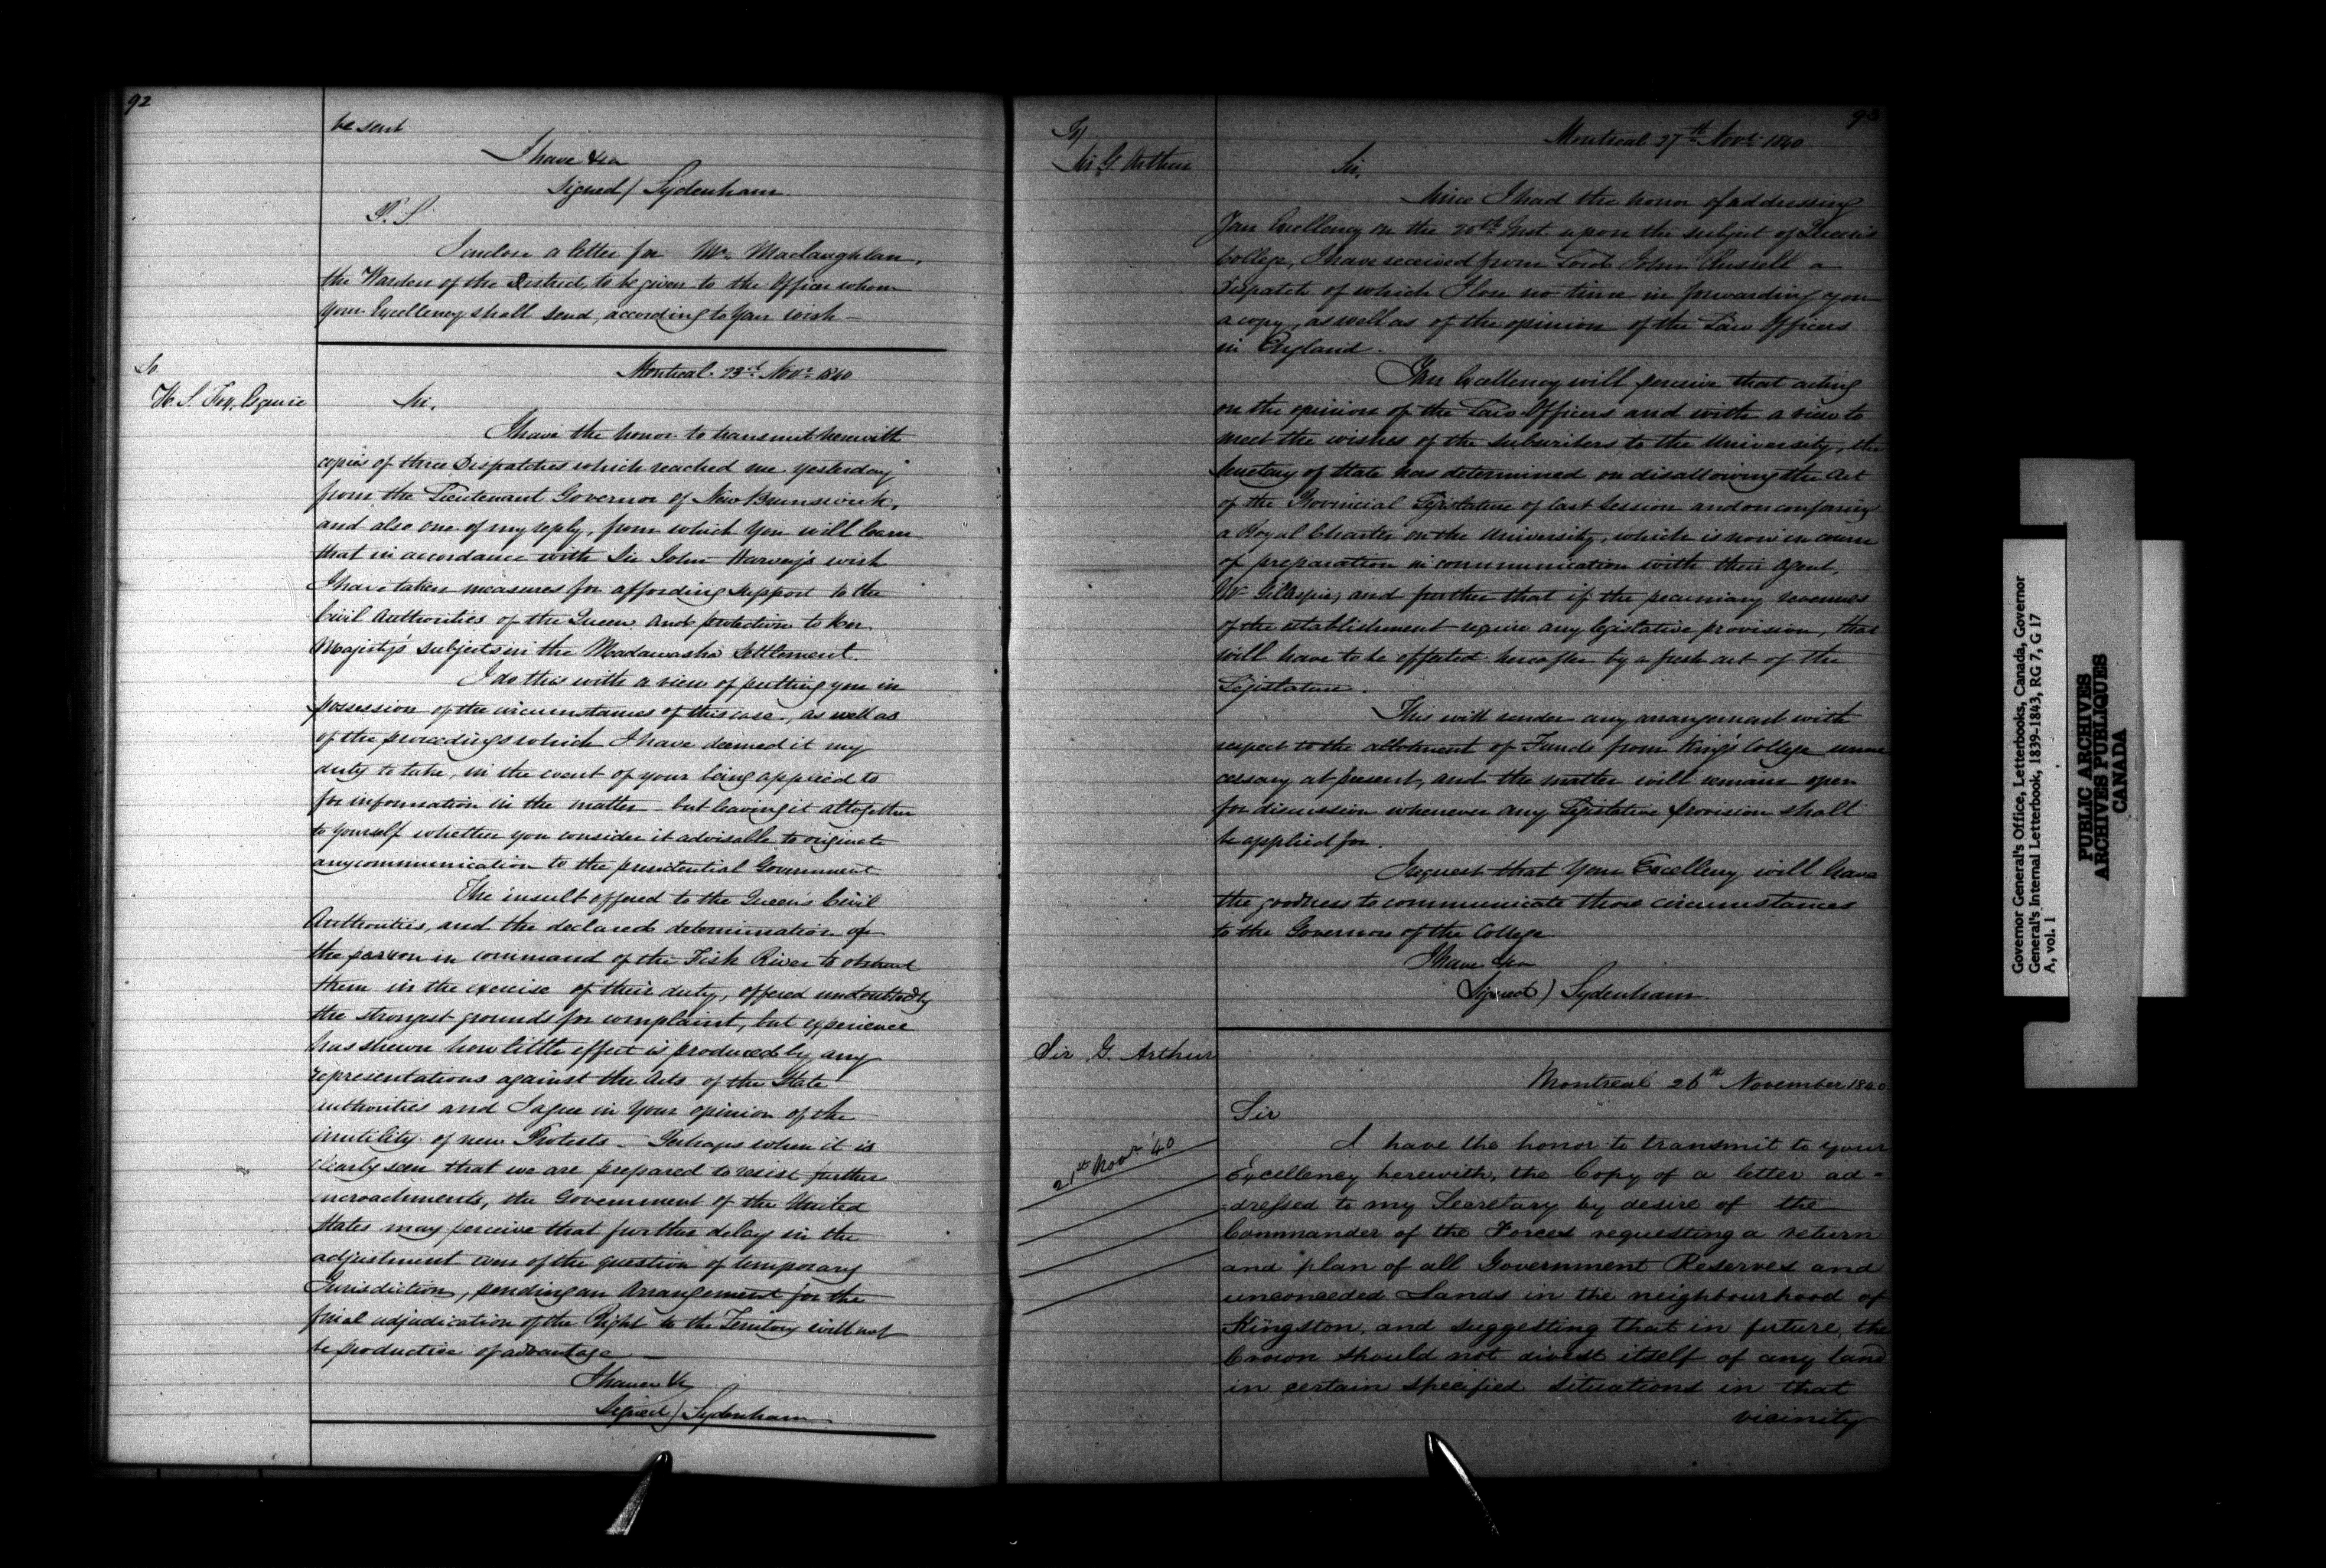 92
be sent
I have &ca
Signed / Sydenham
P. S.
I enclose a letter for Mr. Maclaughlan,
the Warden of the District, to be given to the Officer whom
your Excellency shall send, according to your wish –
To
H. S. Fox, Esquire
Montreal. 23rd Novr. 1840
Sir,
I have the honor to transmit herewith
copies of three Dispatches which reached me yesterday
from the Lieutenant Governor of New Brunswick,
and also one of my reply, from which you will learn
that in accordance with Sir John Harvey's wish
I have taken measures for affording support to the
Civil Authorities of the Queen and protection to Her
Majesty's subjects in the Madawaska Settlement.
I do this with a view of putting you in
possession of the circumstances of this case, as well as
of the proceedings which I have deemed it my
duty to take, in the event of your being applied to
for information in the matter – but leaving it altogether
to yourself whether you consider it advisable to originate
any communication to the presidential Government
The insult offered to the Queen's Civil
Authorities, and the declared determination of
the person in command of the Fish River to obstruct
them in the exercise of their duty, offered undoubtedly
the strongest grounds for complaint, but experience
has shewn how little effect is produced by any
representations against the Acts of the State
Authorities and I agree in your opinion of the
inutility of new Protests – Perhaps when it is
clearly seen that we are prepared to resist further
incroachments, the Government of the United
States may perceive that further delay in the
adjustment even of the question of temporary
Jurisdiction, pending an Arrangement for the
final adjudication of the Right to the Territory will not
be productive of advantage –
I have &c
Signed / Sydenham
93
To
Sir G. Arthur
Montreal 27th Novr. 1840
Sir,
Since I had the honor of addressing
Your Excellency on the 20th Inst. upon the subject of Queen's
College, I have received from Lord John Russell a
Dispatch of which I lose no time in forwarding you
a copy, as well as of the opinion of the Law Officers
in England.
Your Excellency will perceive that acting
on the opinion of the Law Officers and with a view to
meet the wishes of the Subscribers to the University, the
Secretary of State has determined on disallowing the Act
of the Provincial Legislature of last Session and on conferring
a Royal Charter on the University, which is now in course
of preparation in communication with their Agent,
Mr Gillespie, and further that if the pecuniary revenues
of the establishment require any legislative provision, that
will have to be effected hereafter by a fresh act of the
Legislature.
This will render any arrangement with
respect to the allotment of Funds from King's College unne
cessary at present, and the matter will remain open
for discussion whenever any Legislative provision shall
be applied for.
I request that Your Excellency will have
the goodness to communicate these circumstances
to the Governors of the College
I have &ca
Signed) Sydenham.
Sir G. Arthur
Montreal 26th November 1840
Sir
21st Novr '40
I have the honor to transmit to your
Excellency herewith, the Copy of a letter ad-
-dressed to my Secretary by desire of the
Commander of the Forces requesting a return
and plan of all Government Reserves and
unconceded Lands in the neighbourhood of
Kingston, and suggesting that in future, the
Crown should not divest itself of any land
in certain specified situations in that
vicinity
Governor General's Office, Letterbooks, Canada, Governor
General's Internal Letterbook, 1839-1843, RG 7, G 17
A, vol. 1
PUBLIC ARCHIVES
ARCHIVES PUBLIQUES
CANADA